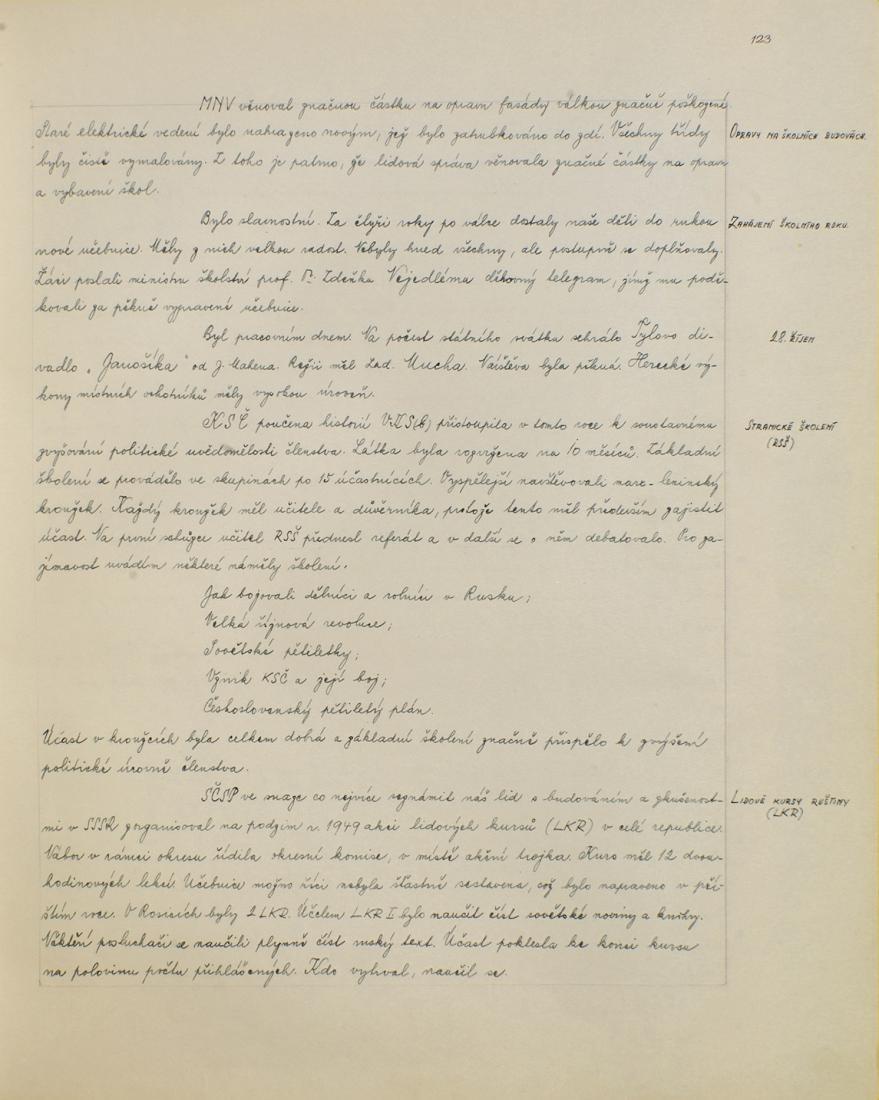 123
MNV věnoval značnou částku na opravu fasády válkou značně poškozené.
Staré elektrické vedení bylo nahrazeno novým, jež bylo zatrubkováno do zdí. Všechny třídy
OPRAVY NA ŠKOLNÍCH BUDOVÁCH.
byly čistě vymalovány. Z toho je patrno, že lidová správa věnovala značné částky na opravu
a vybavení škol.
Bylo slavnostní. Za čtyři roky po válce dostaly naše děti do rukou
ZAHÁJENÍ ŠKOLNÍHO ROKU.
nové učebnice. Měly z nich velkou radost. Nebyly hned všechny, ale postupně se doplňovaly.
Žáci poslali ministru školství prof. Dr. Zdeňku Nejedlému děkovný telegram, jímž mu podě-
kovali za pěkně vypravené učebnice.
Byl pracovním dnem. Na počest státního svátku sehrálo Tylovo di-
28. ŘÍJEN
vadlo „Janošíka" od J. Mahena. Režii měl Lad. Mucha. Návštěva byla pěkná. Herecké vý-
kony místních ochotníků měly vysokou úroveň.
KSČ poučena historií VKS(b) přistoupila v tomto roce k soustavnému
STRANICKÉ ŠKOLENÍ
(RSŠ)
zvyšování politické uvědomělosti členstva. Látka byla rozvržena na 10 měsíců. Základní
školení se provádělo ve skupinách po 15 účastnících. Vyspělejší navštěvovali marx-leninský
kroužek. Každý kroužek měl učitele a důvěrníka, protože tento měl především zajistit
účast. Na první schůzce učitel RSŠ přednesl referát a v další se o něm debatovalo. Pro za-
jímavost uvádím některé náměty školení.
Jak bojovali dělníci a rolníci v Rusku;
Velká říjnová revoluce;
Sovětské pětiletky;
Vznik KSČ a její boj;
Československý pětiletý plán.
Účast v kroužcích byla celkem dobrá a základní školení značně přispělo k zvýšení
politické úrovně členstva.
SČSP ve snaze co nejvíce seznámit náš lid s budováním a zkušenost-
LIDOVÉ KURSY RUŠTINY
(LKR)
mi v SSSR zorganisoval na podzim r. 1949 akci lidových kursů (LKR) v celé republice.
Nábor v rámci okresu řídila okresní komise, v místě akční trojka. Kurs měl 12 dvou-
hodinových lekcí. Učebnice možno říci nebyla šťastně sestavena, což bylo napraveno v pří-
štím roce. V Rosicích byly 2 LKR. Účelem LKR I bylo naučit číst sovětské noviny a knihy.
Někteří posluchači se naučili plynně číst ruský text. Účast poklesla ke konci kursu
na polovinu počtu přihlášených. Kdo vytrval, naučil se.